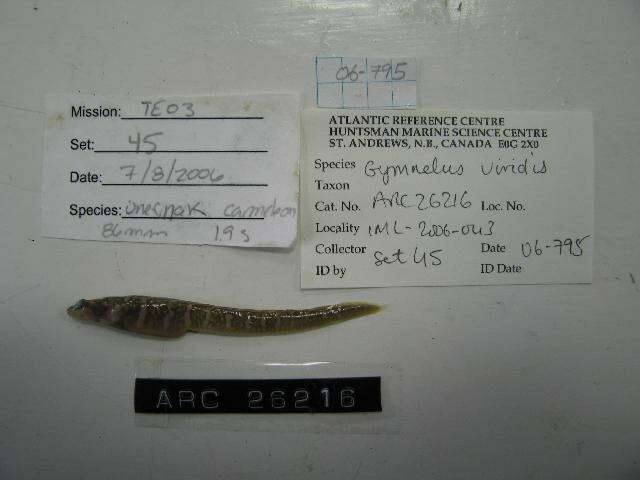 06-795
Mission: TE03
Set: 45
Date: 7/8/2006
Species: unernak caméléon
86mm 1.9g
ATLANTIC REFERENCE CENTRE
HUNTSMAN MARINE SCIENCE CENTRE
ST. ANDREWS, N.B., CANADA E0G 2X0
Species Gymnelus viridis
Taxon
Cat. No. ARC26216 Loc. No.
Locality IML-2006-043
Collector Set 45 Date 06-795
ID by ID Date
ARC 26216